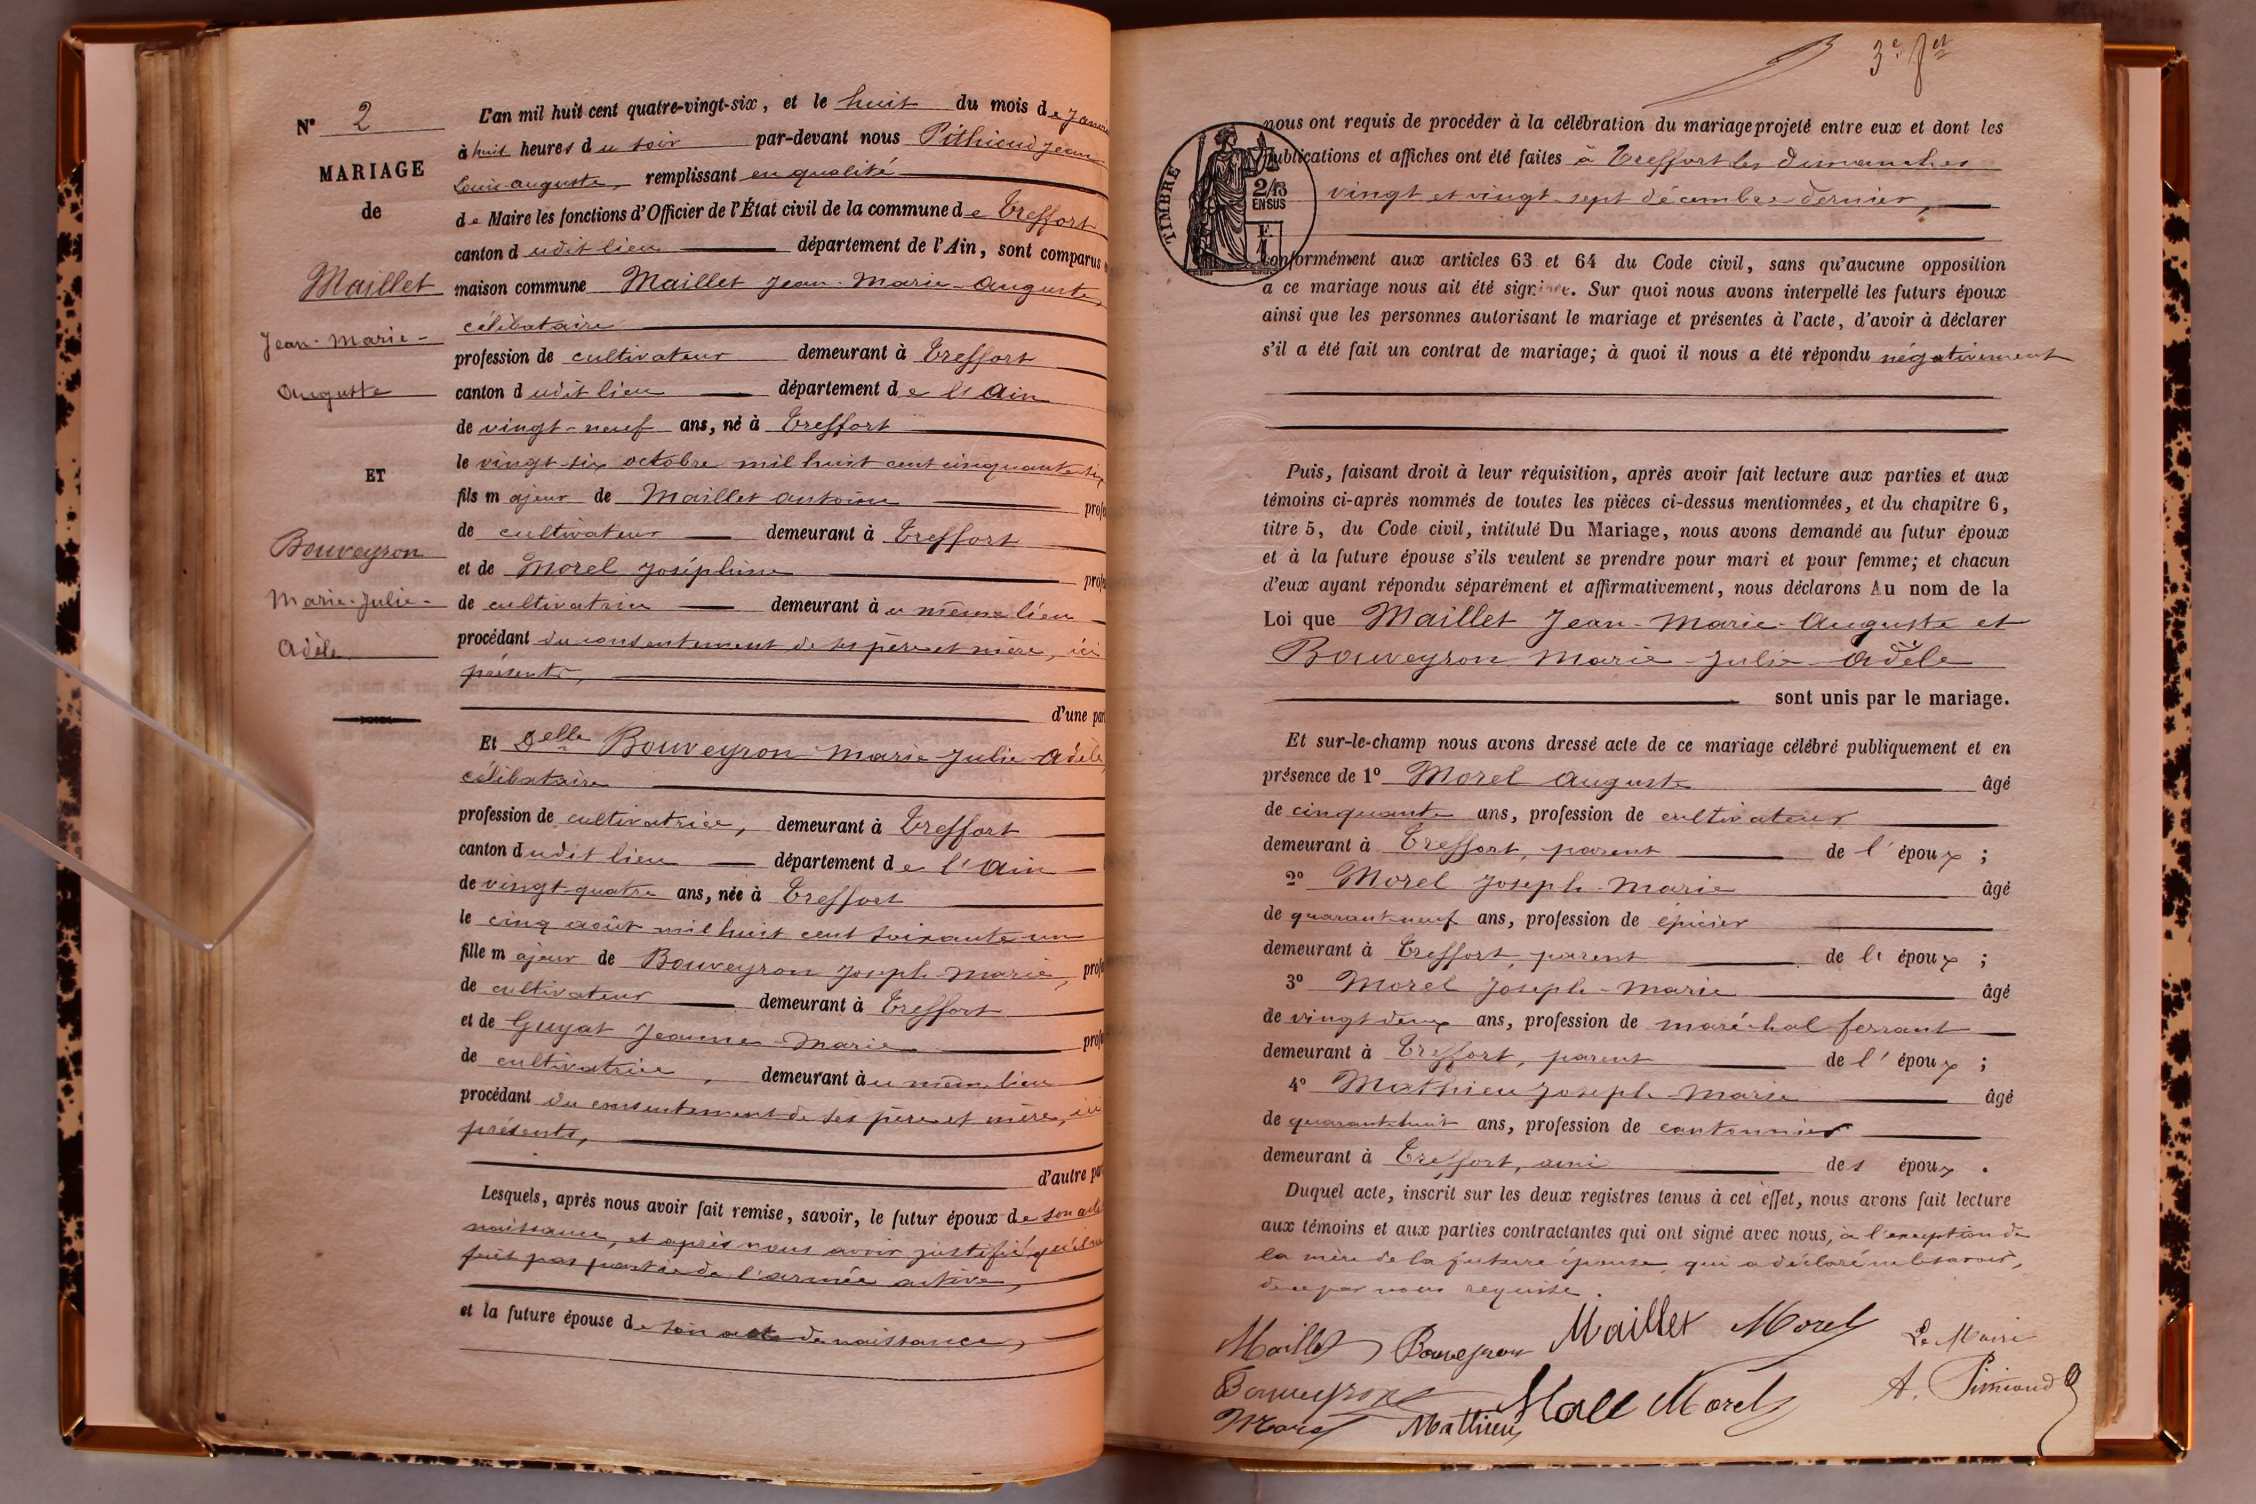 N° 2
MARIAGE
de
Maillet
Jean-Marie-
Auguste
ET
Bouveyron
Marie-Julie-
Adèle
L'an mil huit cent quatre-vingt-six, et le huit du mois de Janvier
à huit heures du soir par-devant nous Jean
Louis Auguste, remplissant en qualité
de Maire les fonctions d'Officier de l'État civil de la commune de Treffort
canton dudit lieu département de l'Ain, sont comparus
maison commune Maillet Jean-Marie-Auguste,
célibataire
profession de cultivateur demeurant à Treffort
canton dudit lieu département de l'Ain
de vingt-neuf ans, né à Treffort
le vingt-six octobre mil huit cent cinquante six
fils majeur de Maillet Antoine profes
de cultivateur demeurant à Treffort
et de Morel Joséphine profes
de cultivatrice demeurant au même lieu
procédant du consentement de ses père et mère, ici
présents,
d'une part
Et Delle Bouveyron Marie-Julie-Adèle,
célibataire
profession de cultivatrice, demeurant à Treffort
canton dudit lieu département de l'Ain
de vingt-quatre ans, née à Treffort
le cinq août mil huit cent soixante-un
fille majeur de Bouveyron Joseph-Marie, profes
de cultivateur demeurant à Treffort
et de Guyat Jeanne-Marie profes
de cultivatrice, demeurant au même lieu
procédant du consentement de ses père et mère, ici
présents,
d'autre part
Lesquels, après nous avoir fait remise, savoir, le futur époux de son acte
naissance, et après nous avoir justifié qu'il ne
fait pas partie de l'armée active,
et la future épouse de son acte de naissance,
3e
TIMBRE
2/10
EN SUS
F.
1
nous ont requis de procéder à la célébration du mariage projeté entre eux et dont les
publications et affiches ont été faites à Treffort les dimanches
vingt et vingt-sept décembre dernier,
conformément aux articles 63 et 64 du Code civil, sans qu'aucune opposition
à ce mariage nous ait été signifiée. Sur quoi nous avons interpellé les futurs époux
ainsi que les personnes autorisant le mariage et présentes à l'acte, d'avoir à déclarer
s'il a été fait un contrat de mariage; à quoi il nous a été répondu négativement
Puis, faisant droit à leur réquisition, après avoir fait lecture aux parties et aux
témoins ci-après nommés de toutes les pièces ci-dessus mentionnées, et du chapitre 6,
titre 5, du Code civil, intitulé Du Mariage, nous avons demandé au futur époux
et à la future épouse s'ils veulent se prendre pour mari et pour femme; et chacun
d'eux ayant répondu séparément et affirmativement, nous déclarons Au nom de la
Loi que Maillet Jean-Marie-Auguste et
Bouveyron Marie-Julie-Adèle
sont unis par le mariage.
Et sur-le-champ nous avons dressé acte de ce mariage célébré publiquement et en
présence de 1° Morel Auguste âgé
de cinquante ans, profession de cultivateur
demeurant à Treffort, parent de l'époux;
2° Morel Joseph-Marie âgé
de quarant-neuf ans, profession de épicier
demeurant à Treffort, parent de l'époux;
3° Morel Joseph-Marie âgé
de vingt-deux ans, profession de maréchal-ferrant
demeurant à Treffort, parent de l'époux;
4° Mathieu Joseph-Marie âgé
de quarant-huit ans, profession de cantonnier
demeurant à Treffort, ami des époux.
Duquel acte, inscrit sur les deux registres tenus à cet effet, nous avons fait lecture
aux témoins et aux parties contractantes qui ont signé avec nous, à l'exception de
la mère de la future épouse, qui a déclaré ne le savoir,
de ce par nous requise.
Maillet Bouveyron Maillet Morel Le Maire
Bouveyron Morel
Morel Mathieu